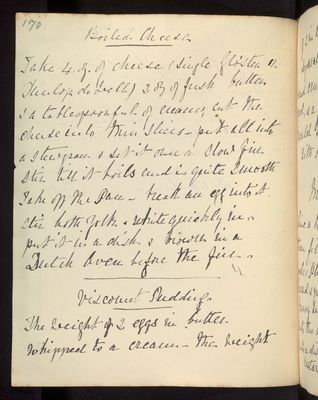 170
Boiled Cheese
Take 4 oz. of cheese (single Gloster or
Dunlop do. well) 2 oz of fresh butter
& a tablespoonful of cream, cut the
cheese into thin slices - put all into
a stewpan & set it over a slow fire
Stir till it boils and is quite smooth
Take off the Pan - break an egg into it.
Stir both yolk & white quickly in -
put it in a dish & brown in a
Dutch Oven before the fire -
Viscount Pudding.
The weight of 2 eggs in butter
Whipped to a cream - the weight